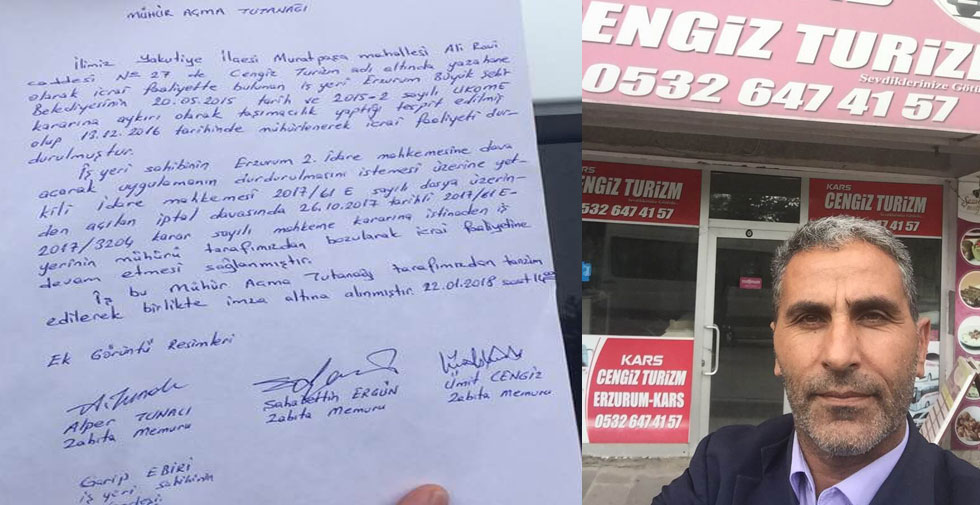 MÜHÜR AÇMA TUTANAĞI
İlimiz Yakutiye İlçesi Muratpaşa mahallesi Ali Ravi
caddesi No 27 de Cengiz Turizm adı altında yazıhane
olarak icrai faaliyette bulunan iş yeri Erzurum Büyük Şehir
Belediyesinin 20.05.2015 tarih ve 2015-2 sayılı UKOME
kararına aykırı olarak taşımacılık yaptığı tespit edilmiş
olup 13.12.2016 tarihinde mühürlenerek icrai faaliyeti dur-
durulmuştur.
İş yeri sahibinin Erzurum 2. İdare mahkemesine dava
acarak uygulamanın durdurulmasını istemesi üzerine yet-
kili İdare mahkemesi 2017/61 E sayılı dosya üzerin-
den açılan iptal davasında 26.10.2017 tarihli 2017/61 E-
2017/3204 karar sayılı mahkeme kararına istinaden iş
yerinin mühürü tarafımızdan bozularak icrai faaliyetine
devam etmesi sağlanmıştır.
İş bu Mühür Açma Tutanağı tarafımızdan tanzim
edilerek birlikte imza altına alınmıştır. 22.01.2018 saat 14
Ek Görüntü Resimleri
Alper TUNACI
Zabıta Memuru
Sahabettin ERGÜN
Zabıta Memuru
Ümit CENGİZ
Zabıta Memuru
Garip EBİRİ
iş yeri sahibinin
CENGİZ TURİZM
Sevdiklerinize
0532 647 41 57
KARS
CENGİZ TURİZM
0532 647 41 57
KARS
CENGİZ TURİZM
532 647 41 57
KARS
CENGİZ TURİZM
ERZURUM-KARS
0532 647 41 57